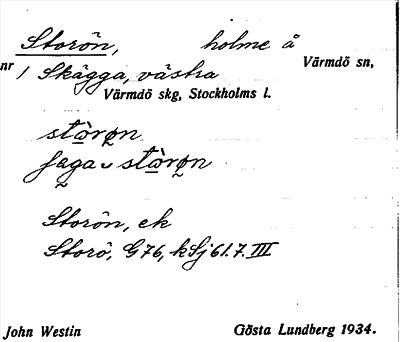 Storön, holme å
nr 1 Skägga, västra Värmdö sn,
Värmdö skg, Stockholms l.
stòrǫn
jaga stòrǫn
Storön, ek
Storö, G76, kSj 61.7.III
John Westin Gösta Lundberg 1934.